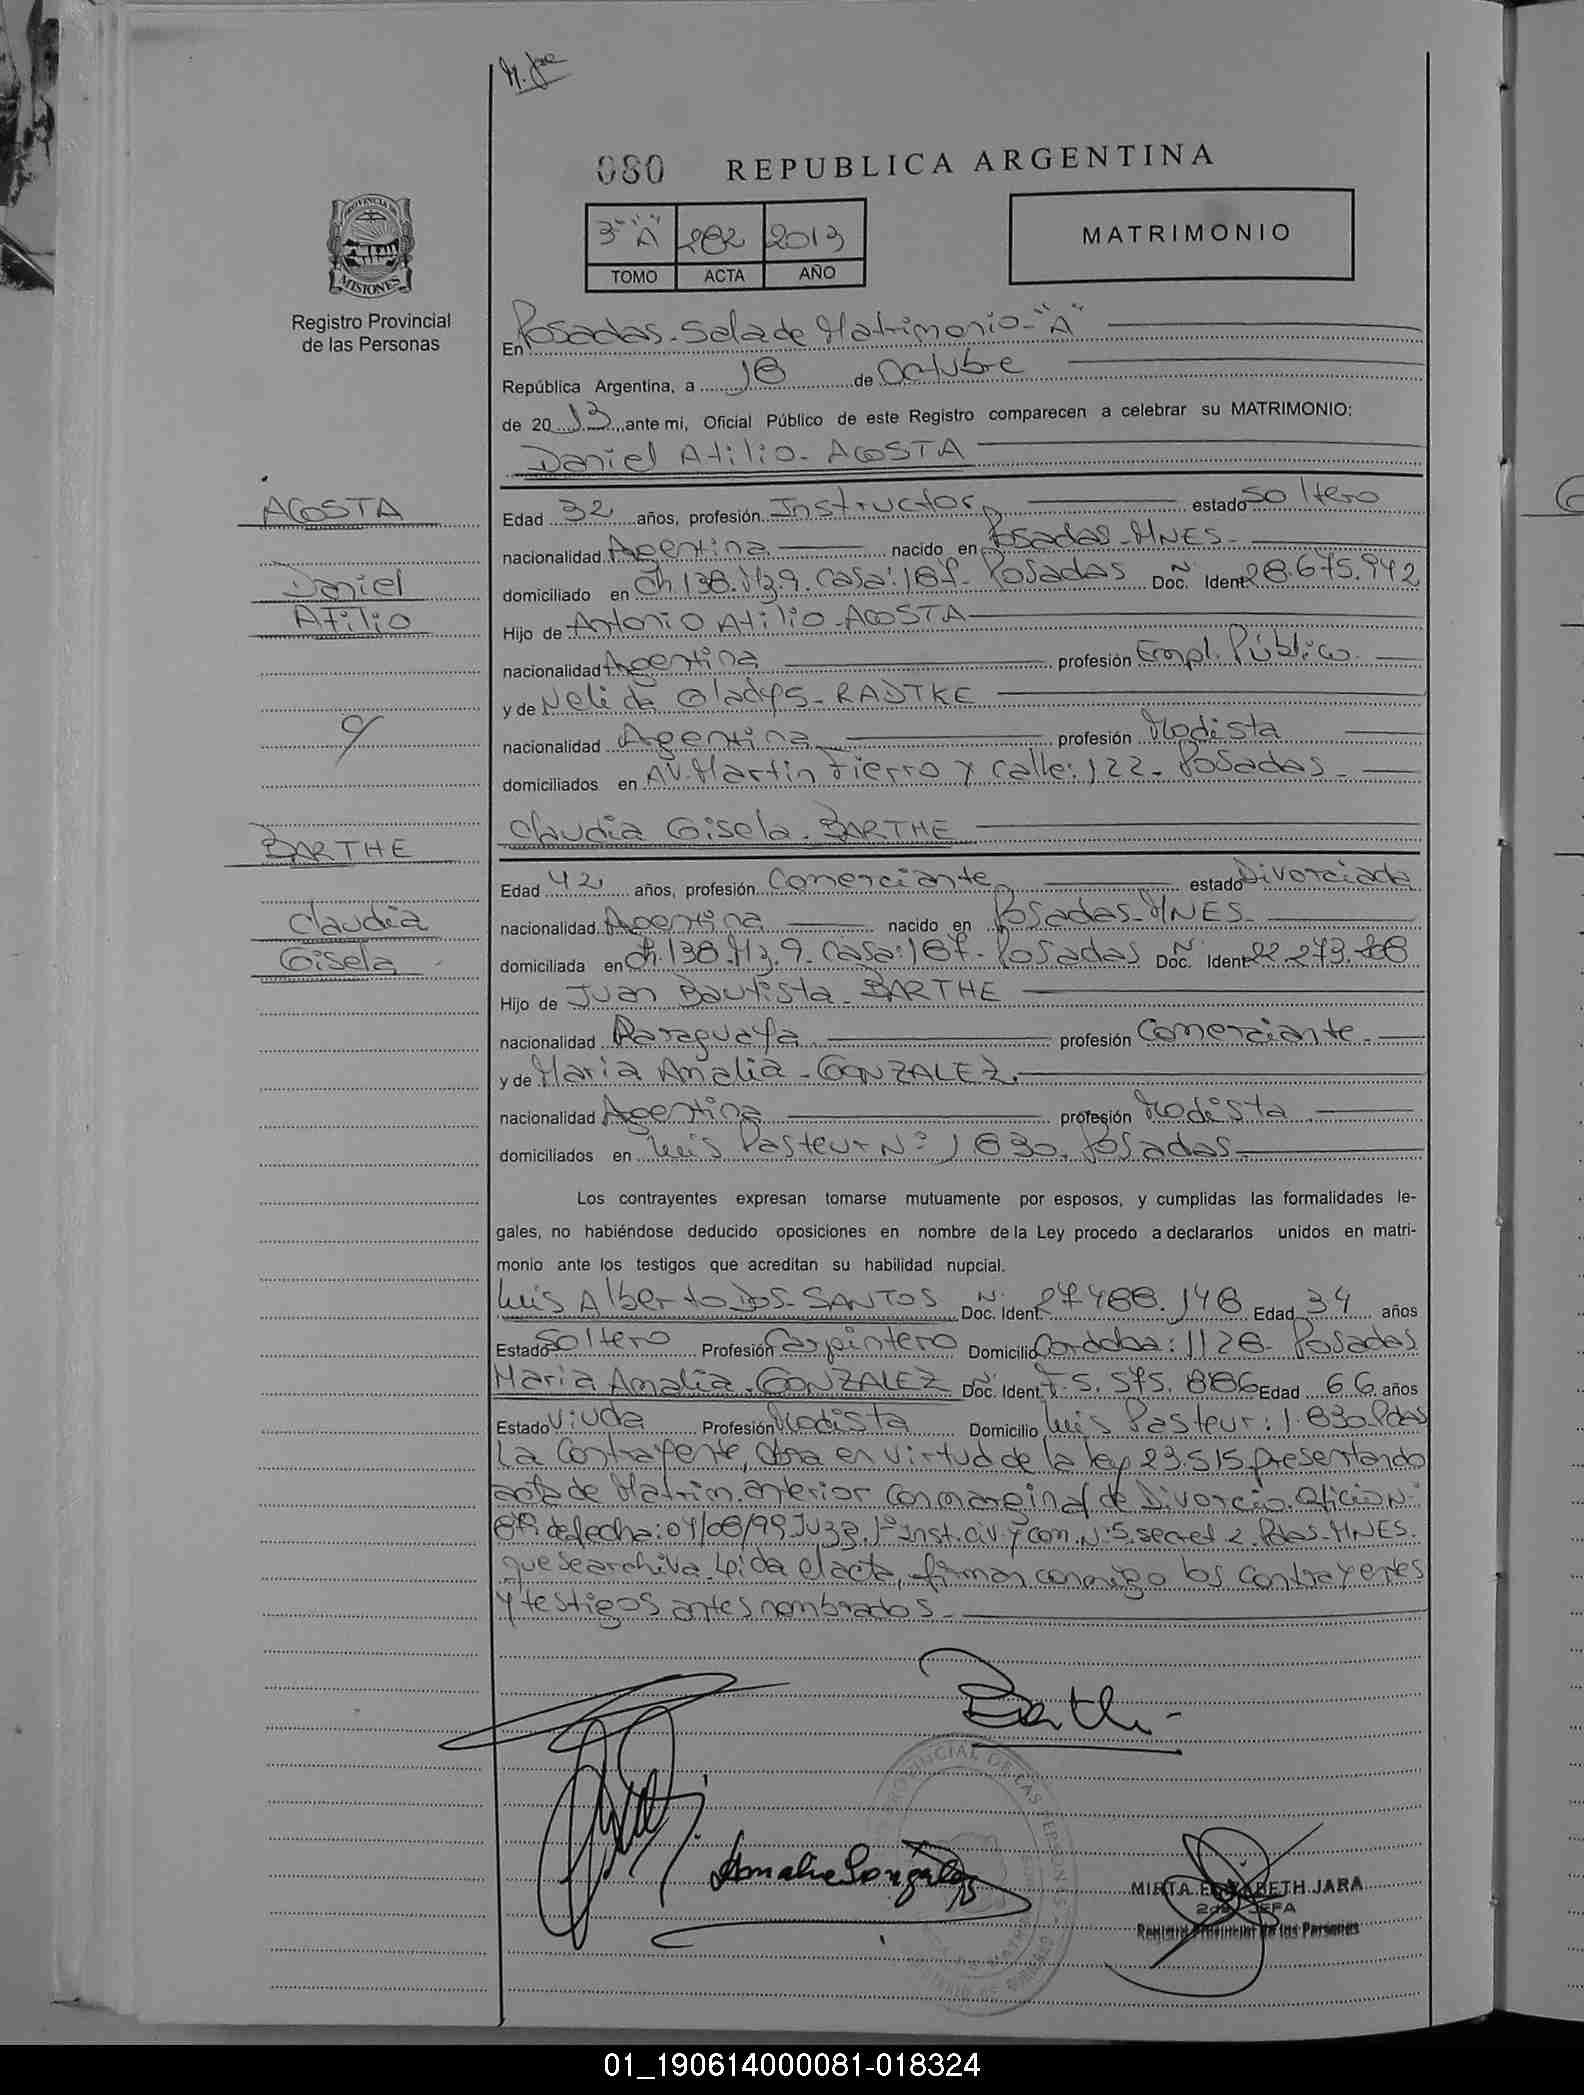 M. Jara
080 REPUBLICA ARGENTINA
PROVINCIA DE
MISIONES
Registro Provincial
de las Personas
3° "A" 282 2013
TOMO ACTA AÑO
MATRIMONIO
En Posadas-Sala de Matrimonio-"A"
República Argentina, a 18 de Octubre
de 2013 ante mi, Oficial Público de este Registro comparecen a celebrar su MATRIMONIO:
Daniel Atilio-ACOSTA
ACOSTA
Daniel
Atilio
Edad 32 años, profesión Instructor estado Soltero
nacionalidad Argentina nacido en Posadas-MNES-
domiciliado en Ch.138.Mz.9.Casa:187-Posadas Doc. N° Ident 28.675.942
Hijo de Antonio Atilio-ACOSTA
nacionalidad Argentina profesión Empl. Público.
y de Nelida Gladys-RADTKE
nacionalidad Argentina profesión Modista
domiciliados en AV.Martin Fierro y calle:122-Posadas-
y
BARTHE
Claudia
Gisela
Claudia Gisela-BARTHE
Edad 42 años, profesión Comerciante estado Divorciada
nacionalidad Argentina nacido en Posadas-MNES-
domiciliada en Ch.138.Mz.9.Casa:187-Posadas Doc. N° Ident 22.273.
Hijo de Juan Bautista-BARTHE
nacionalidad Paraguaya profesión Comerciante-
y de Maria Amalia-GONZALEZ.
nacionalidad Argentina profesión Modista
domiciliados en Luis Pasteur N° 1830. Posadas
Los contrayentes expresan tomarse mutuamente por esposos, y cumplidas las formalidades le-
gales, no habiéndose deducido oposiciones en nombre de la Ley procedo a declararlos unidos en matri-
monio ante los testigos que acreditan su habilidad nupcial.
Luis Alberto DOS-SANTOS Doc. N° Ident 27.488.148 Edad 34 años
Estado Soltero Profesión Carpintero Domicilio Cordoba:1128-Posadas
Maria Amalia-GONZALEZ Doc. N° Ident F.5.575.886 Edad 66 años
Estado Viuda Profesión Modista Domicilio Luis Pasteur:1.830.Pdas
La Contrayente, obra en virtud de la ley 23.515 presentando
acta de Matrim.anterior con marginal de Divorcio.Oficio N°
de fecha:04/08/99 Juzg.1° Inst.civ.y com.N°5.secret 2.Pdas-MNES.
que se archiva.Leida el acta, firman conmigo los Contrayentes
y testigos antes nombrados-
Barthe
Amalia González
MIRTA ELIZABETH JARA
2da JEFA
Registro Provincial de las Personas
PROVINCIAL DE LAS PERSONAS
01_190614000081-018324